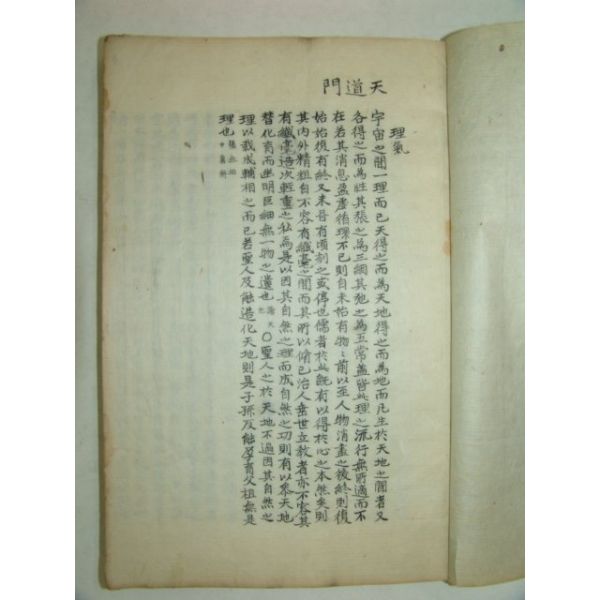 天道門
理氣
宇宙之間一理而已天得之而為天地得之而為地而凡生於天地之間者又
各得之而為性其張之為三綱其紀之為五常蓋皆此理之流行無所適而不
在若其消息盈虛循環不已則自未始有物之前以至人物消盡之後終則復
始始復有終又未嘗有頃刻之或停也儒者於此既有以得於心之本然矣則
其內外精粗自不容有纖毫之間而其所以脩己治人垂世立教者亦不容其
有纖毫造次輕重之私焉是以因其自然之理而成自然之功則有以參天地
贊化育而幽明巨細無一物之遺也讀大紀○聖人之於天地不過因其自然之
理以裁成輔相之而已若聖人反能造化天地則是子孫反能孕育父祖無是
理也